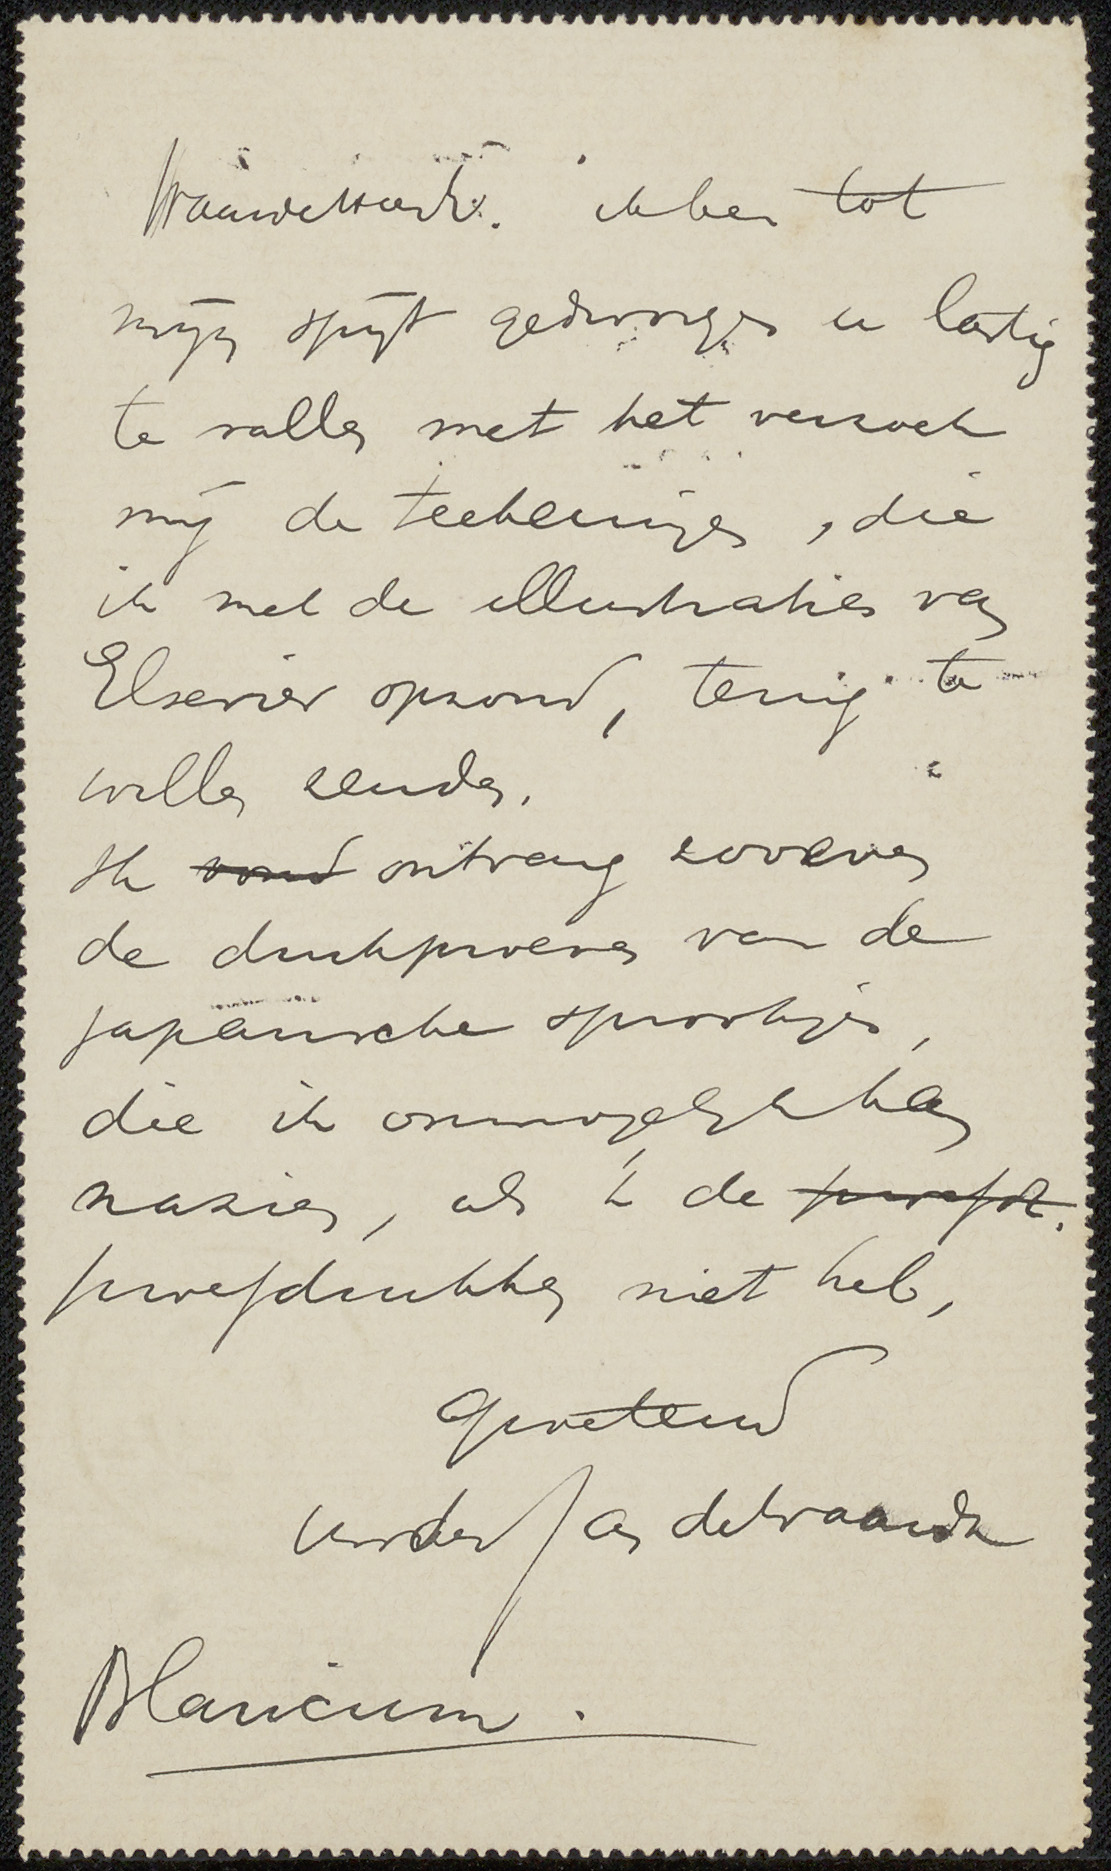 Waarde Heer. ik ben tot
mijn spijt gedwongen u lastig
te vallen met het verzoek
mij de teekeningen, die
ik met de illustraties van
Elsevier opzond, terug te
willen zenden.
Ik vond ontvang zooeven
de drukproeven van de
japansche sprookjes,
die ik onmogelijk kan
nazien, als ik de proefdr.
proefdrukken niet heb,
groetend
Jan de Waardt
Blaricum.